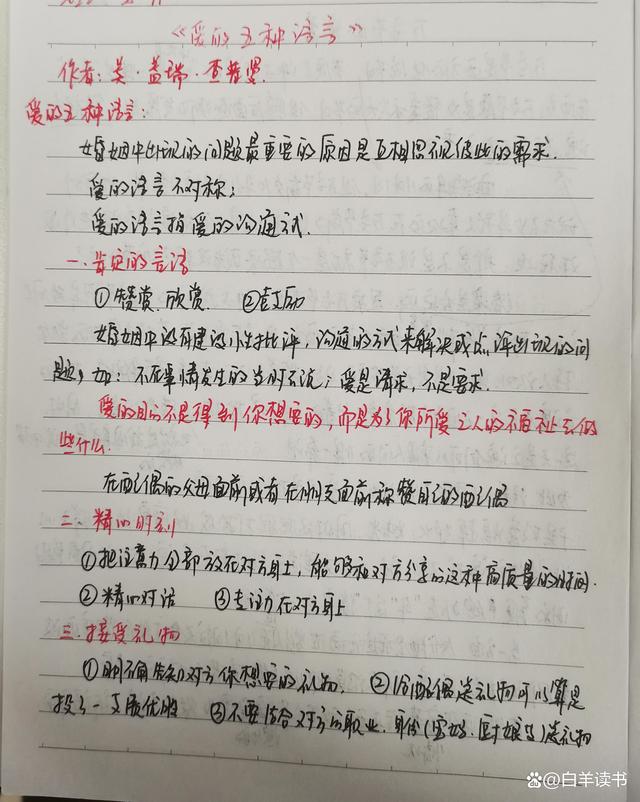 《爱的五种语言》
作者：美·盖瑞·查普曼
爱的五种语言：
婚姻中出现的问题最重要的原因是互相忽视彼此的需求.
爱的语言不对称；
爱的语言指爱的沟通方式.
一.肯定的言语
①赞赏.欣赏 ②鼓励
婚姻中没有建设性批评，沟通的方式来解决或点评出现的问
题，如：不在事情发生的当时去说；爱是请求，不是要求.
爱的目的不是得到你想要的，而是为了你所爱之人的福祉去做
些什么.
在配偶的父母面前或者在朋友面前称赞自己的配偶
二.精心时刻
①把注意力全部放在对方身上，能够和对方分享的这种高质量的时间.
②精心对话 ③专注力在对方身上
三.接受礼物
①明确告知对方你想要的礼物. ②给配偶送礼物可以算是
投了一支质优股 ③不要结合对方的职业.身份(宝妈.)送礼物
白羊读书